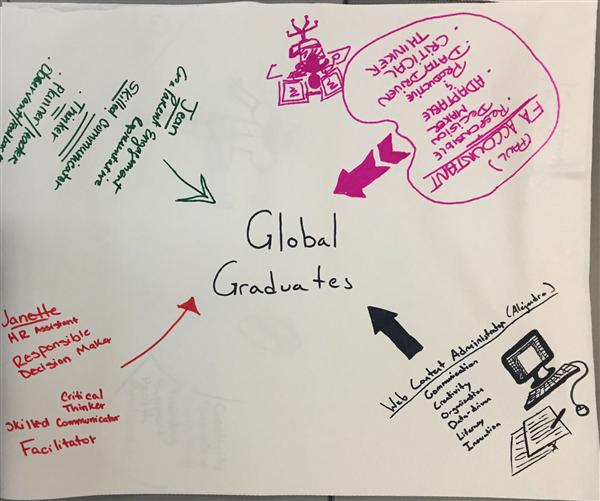 Global
Graduates
Jean
Engagement
Skilled Communicator
Thinker
Planner/leader
(PAUL)
FA ACCOUNTANT
• RESPONSIBLE
DECISION
MAKER
• ADAPTABLE
&
PRODUCTIVE
• DATA DRIVEN
• CRITICAL
THINKER
Janette
HR Assistant
Responsible
Decision Maker
Critical
Thinker
Skilled Communicator
Facilitator
Web Content Administrator (Alejandro)
Communication
Creativity
Organization
Data-driven
Literacy
Inovation